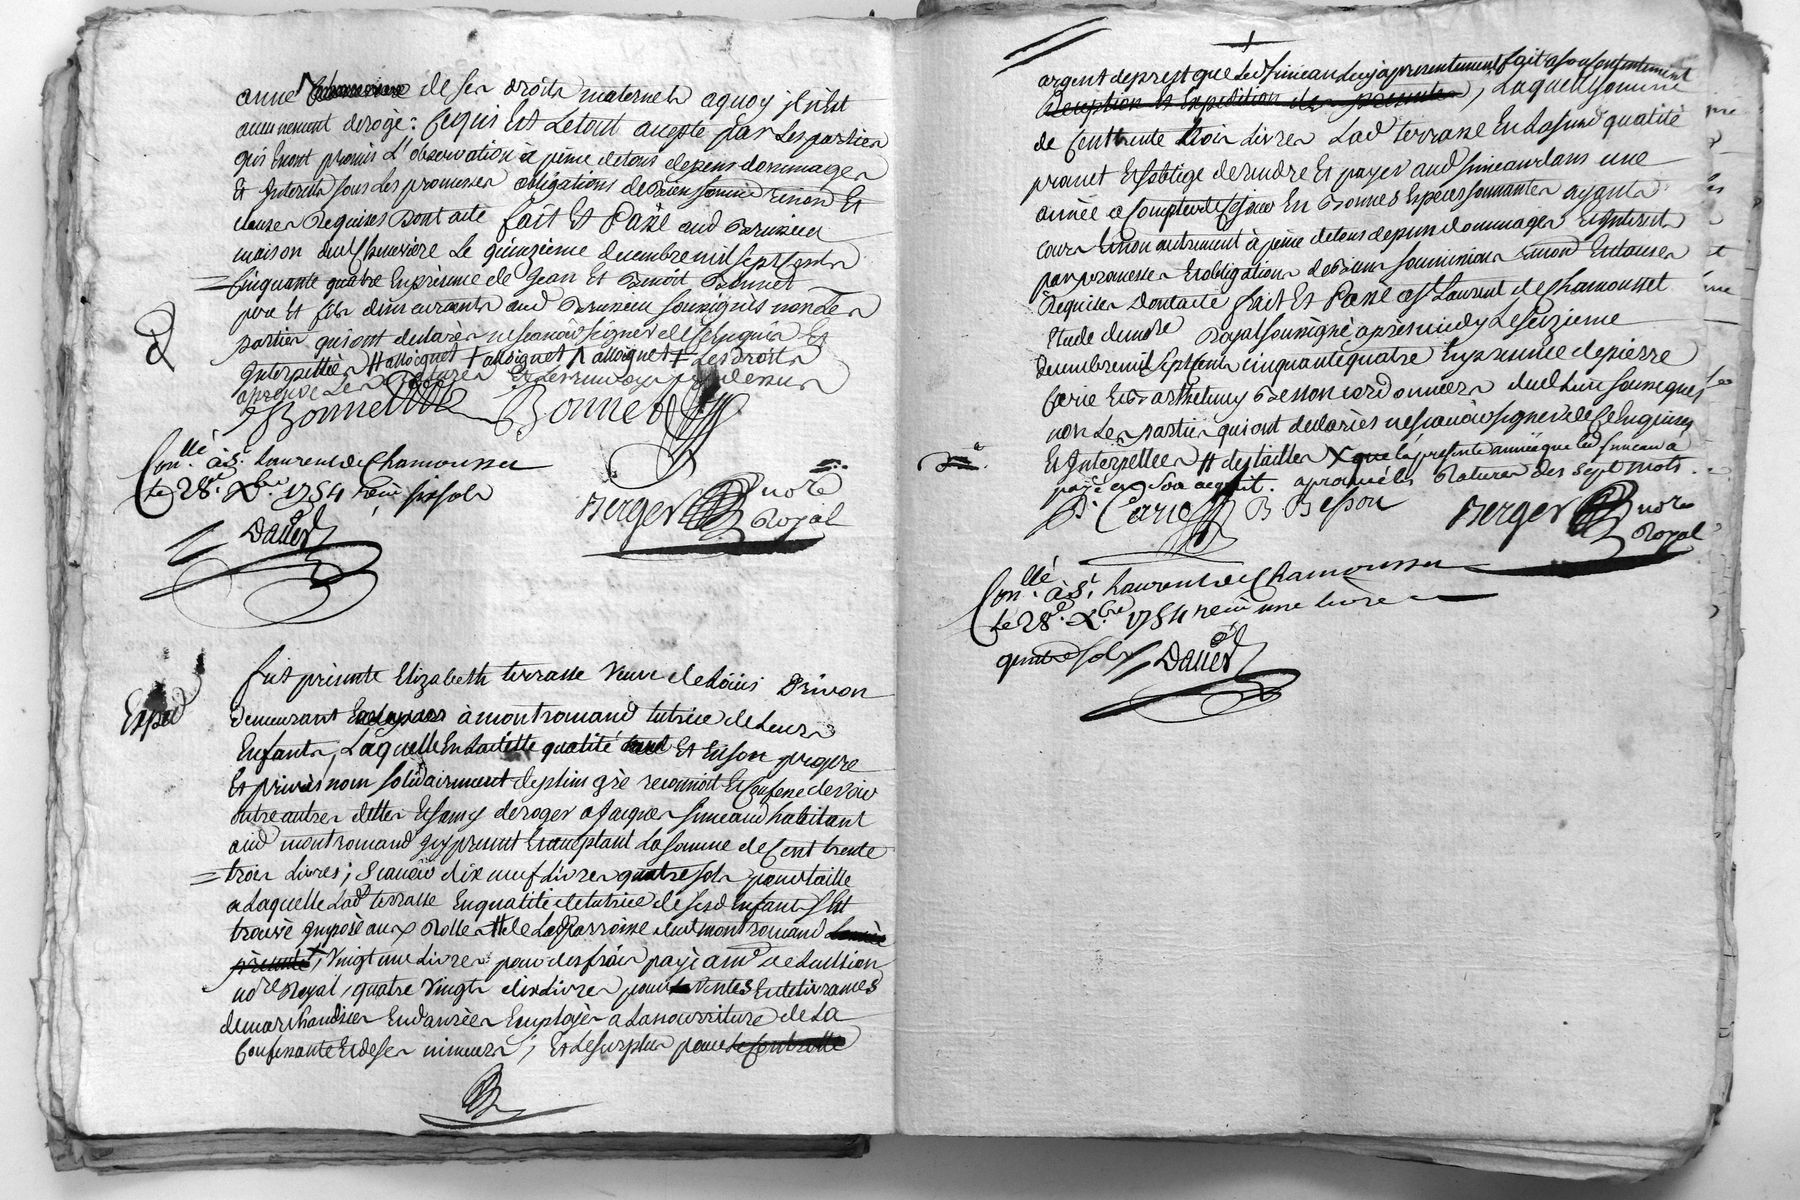 anne de ses droits maternels aquoy il n'est
aucunement derogé : Cequi Est Letout acepté par Les parties
qui Enont promis L'observation à peine detous depens dommages
Et Interests sous Les promesses obligations de biens soumis renon Et
clauses Requises Dont acte fait Et Passé aud Brusseu
maison dud Le quinzieme decembre mil sept Cents
Cinquante quatre En presence de Jean Et Benoit Bonnet
pere Et fils demeurants aud Brusseu soussignés non Les
parties qui ont declarés ne scavoir signer de ce Enquis Et
Interpellés
aprouvé Les
Bonnet Bonnet
Con.llé à St. Laurent de Chamousset
le 28e. Xbre. 1754 reçu six sols
Dauer
Berger nore
Royal
Exped
fut presente Elizabeth terrasse veuve de Loüis Drivon
demeurant à montromand tutrice de Leurs
Enfants, Laquelle En Laditte qualité Et En son propre
Et privés nom solidairement de plein gré reconnoit Et Confesse devoir
outre autres dettes Et sans deroger a Jacques Simeand habitant
aud montromand icy present Et aceptant La somme de Cent trente
trois Livres ; Scavoir dix neuf Livres quatre sols pour taille
a Laquelle Lad terrasse En qualité de tutrice de sesd Enfants s'Est
trouvé imposé aux Rolles # de La Parroisse dud montromand
presente, vingt une Livres pour des frais payé a me
nore Royal, quatre vingts dix Livres pour ventes Et delivrances
de marchandises Endanrées Employés a La nourriture de La
Confessante Et de ses mineurs ; Et Le surplus pour le Controlle
argent de prest que Led Simeand Luy a presentement fait a son Contentement
, Laquelle somme
de Cent trente trois Livres Lad terrasse En Lasusd qualité
promet Et s'oblige de rendre Et payer aud Simeand dans une
année a Compter de Ce jour En Bonnes Espèces sonnantes ayants
cours Et non autrement à peine de tous depens dommages Et Interests
par promesses Et obligations de biens soumissions renond Et clauses
Requises Dont acte fait Et Passé a St. Laurent de Chamousset
Etude du nore Royal soussigné après midy Le seizieme
decembre mil sept cents cinquante quatre En presence de pierre
Carie Et Barthelemy Besson cordonniers dud Lieu soussignés
non Les parties qui ont declarés ne scavoir signer de Ce Enquises
Et Interpellées # des tailles X que la presente année que led Simeand a
payé en son acquit. aprouvé les Ratures des sept mots.
P. Carie B Besson Berger nore
Royal
Con.llé à St. Laurent de Chamousset
le 28e. Xbre 1754 reçu une livre
quatre sols Dauer